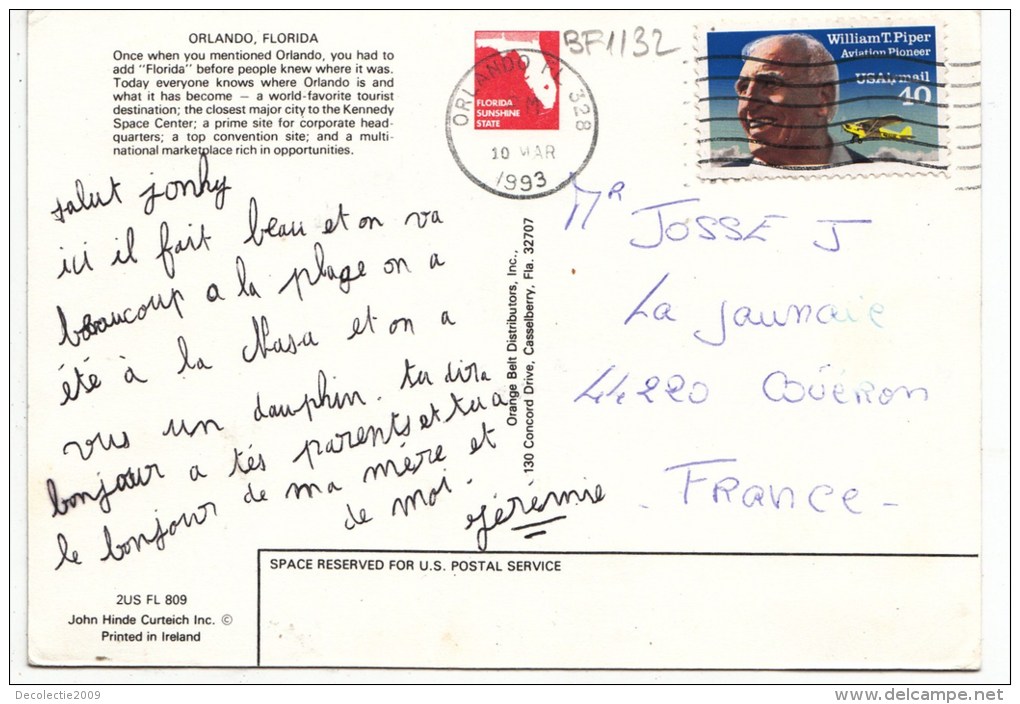 ORLANDO, FLORIDA
Once when you mentioned Orlando, you had to
add "Florida" before people knew where it was.
Today everyone knows where Orlando is and
what it has become — a world-favorite tourist
destination; the closest major city to the Kennedy
Space Center; a prime site for corporate head-
quarters; a top convention site; and a multi-
national marketplace rich in opportunities.
FLORIDA
SUNSHINE
STATE
BF1132
ORLANDO FL 328
10 MAR
1993
William T. Piper
Aviation Pioneer
USAirmail
40
salut jonhy
ici il fait beau et on va
beaucoup a la plage on a
été à la Nasa et on a
vus un dauphin. tu dira
bonjour a tés parents et tu a
le bonjour de ma mére et
de moi.
jérémie
Orange Belt Distributors, Inc.,
130 Concord Drive, Casselberry, Fla. 32707
Mr JOSSE J
La Jaunaie
44220 COÜERON
- FRANCE -
SPACE RESERVED FOR U.S. POSTAL SERVICE
2US FL 809
John Hinde Curteich Inc. ©
Printed in Ireland
Decolectie2009
www.delcampe.net